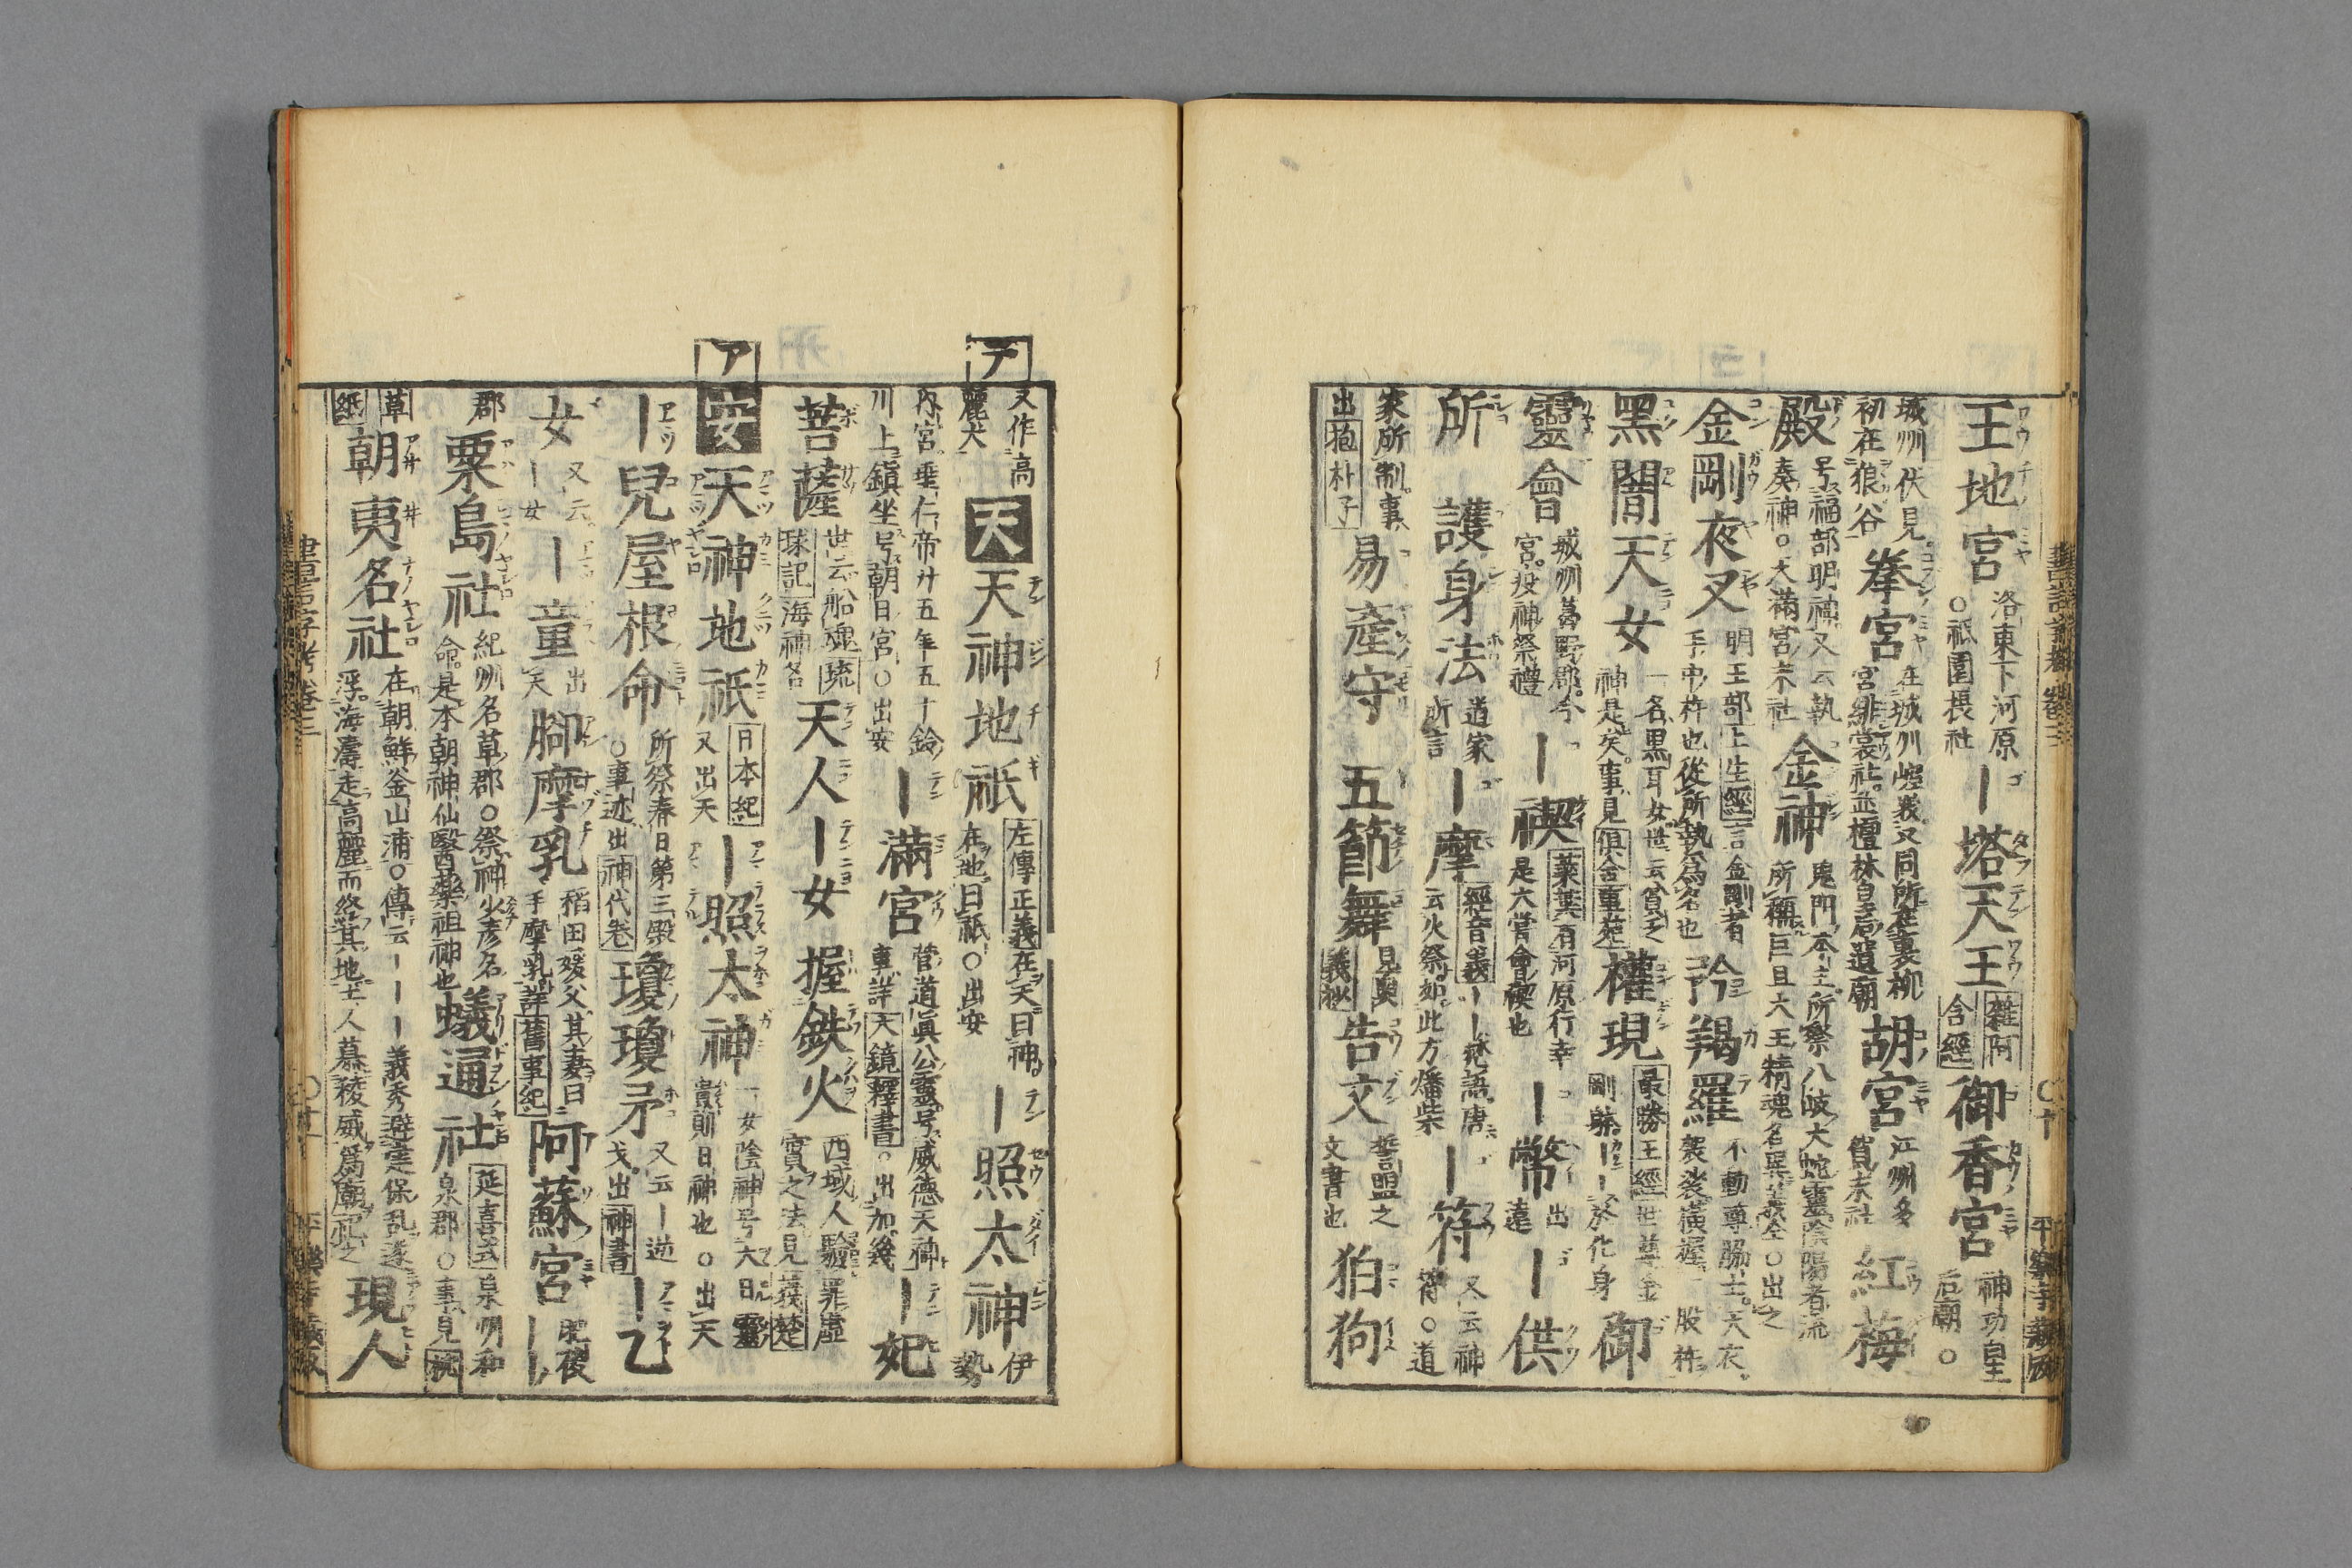 王地宮 洛東下河原○祇園根社 ー塔天王 雜阿含經 御香宮 神功皇后廟○
城州伏見初在狼谷 拳宮 在城州嵯峨又同所在裏柳宮緋裳社並檀林皇后遺廟 胡宮 江州多賀末社 紅梅
殿 号福部明神又云執奏神○天滿宮末社 金神 鬼門本主所祭八岐大蛇靈陰陽者流所稱巨旦大王精魂名異義全○出之
金剛夜叉 明王部上生經言金剛者手中杵也從所執爲名也 矜羯羅 不動尊脇士天衣袈裟橫握一股杵
黑闇天女 一名黑耳女世云貧乏神是矣事見俱舍 權現 最勝王經世尊金剛躰ーー於化身 御
靈會 城州葛野郡今宮疫神祭禮 ー禊 有河原行幸是大嘗會禊也 ー幣 出遠 ー供
所 護身法 道家所言 ー摩 經音義ーー梵語唐云火祭如此方燔柴 ー符 又云神符○道
家所制事出抱朴子 易產守 五節舞 見奧義抄 告文 誓盟之文書也 狛狗
書言字考 卷三 ○十 平樂寺藏版
テ
又作高麗犬 天 天神地祇 左傳正義在天曰神在地曰祇○出安 ー照太神 伊勢
內宮垂仁帝廿五年五十鈴川上鎭坐号朝日宮○出安 ー滿宮 菅道眞公靈号威德天神事詳天鏡釋書○出加幾 ー妃
菩薩 世云船魂琉球記海神名 天人 ー女 握鉄火 西域人驗罪虛實之法見
ア
安 天神地祇 日本紀又出天 ー照太神 一女陰神号大日孁貴則日神也○出天
ー兒屋根命 所祭春日第三殿○事迹出神代卷 瓊瓊矛 又云ー逆戈出神書 ー乙
女 又云ー女 ー童 出天 脚摩乳 稻田媛父其妻曰手摩乳詳舊事紀 阿蘇宮 肥後
郡 粟島社 紀州名草郡○祭神少彥名命是本朝神仙醫藥祖神也 蟻通社 延喜式泉州和泉郡○事見枕
草紙 朝夷名社 在朝鮮釜山浦○傳云ーーー義秀避建保乱遂浮海濤走高麗而終其地土人慕稜威爲廟祀之 現人
書言字考 卷三 ○十一